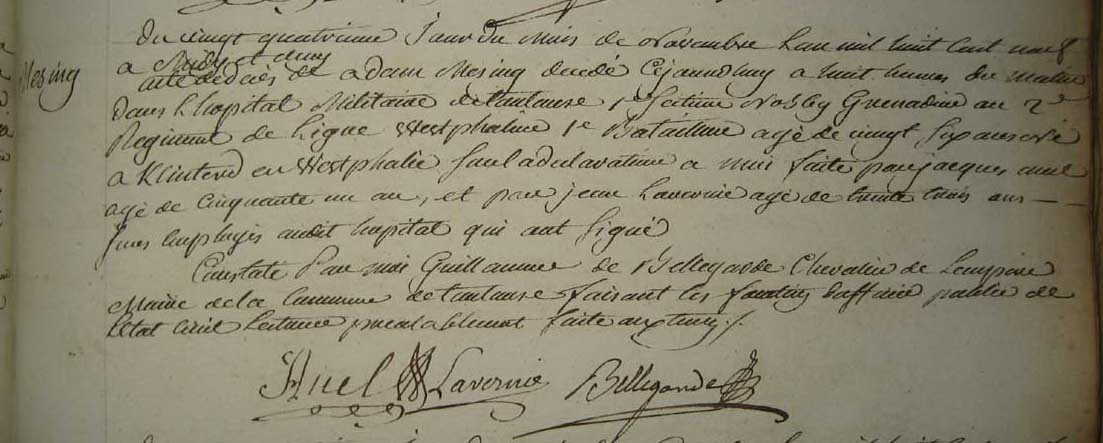 Du vingt quatrieme Jour du Mois de Novembre L'an mil huit Cent neuf
a Midy et demy
Mesing
acte de décès de adam Mesing decedé Cejourdhuy a huit heures du matin
dans L'hopital Militaire de toulouse 1e Section No 864 Grenadier au 2e
Regiment de Ligne Westphalien 1e Bataillon agé de vingt six ans né
a Klinterd en Westphalie sur la declaration a moi faite par jacques anel
agé de Cinquante un an, et par jean Lavernie agé de trente trois ans
tous Employés audit hopital qui ont signé
Constaté Par moi Guillaume de Bellegarde Chevalier de L'empire
Maire de la Commune de toulouse faisant les fonctions d'officier public de
L'état Civil Lecture prealablement faite aux temoins
Anel Lavernie Bellegarde